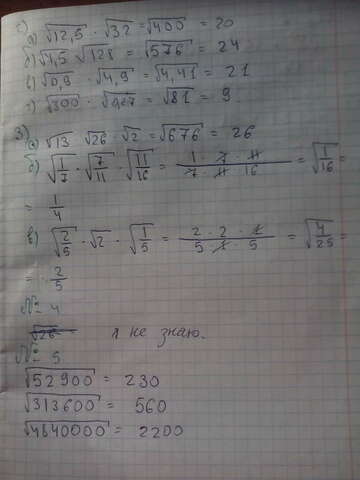 с)
а) √12,5 · √32 = √400 = 20
б) √4,5 √128 = √576 = 24
в) √0,9 · √4,9 = √4,41 = 21
г) √300 · √0,27 = √81 = 9.
3)
а) √13 √26 √2 = √676 = 26
б) √1/7 · √7/11 · √11/16 = 1 · 7 · 11 / 7 · 11 · 16 = √1/16 =
= 1/4
в) √2/5 · √2 · √1/5 = 2 · 2 · 1 / 5 · 1 · 5 = √4/25 =
= 2/5
№ 4
√26 я не знаю.
№ 5
√52900 = 230
√313600 = 560
√4840000 = 2200